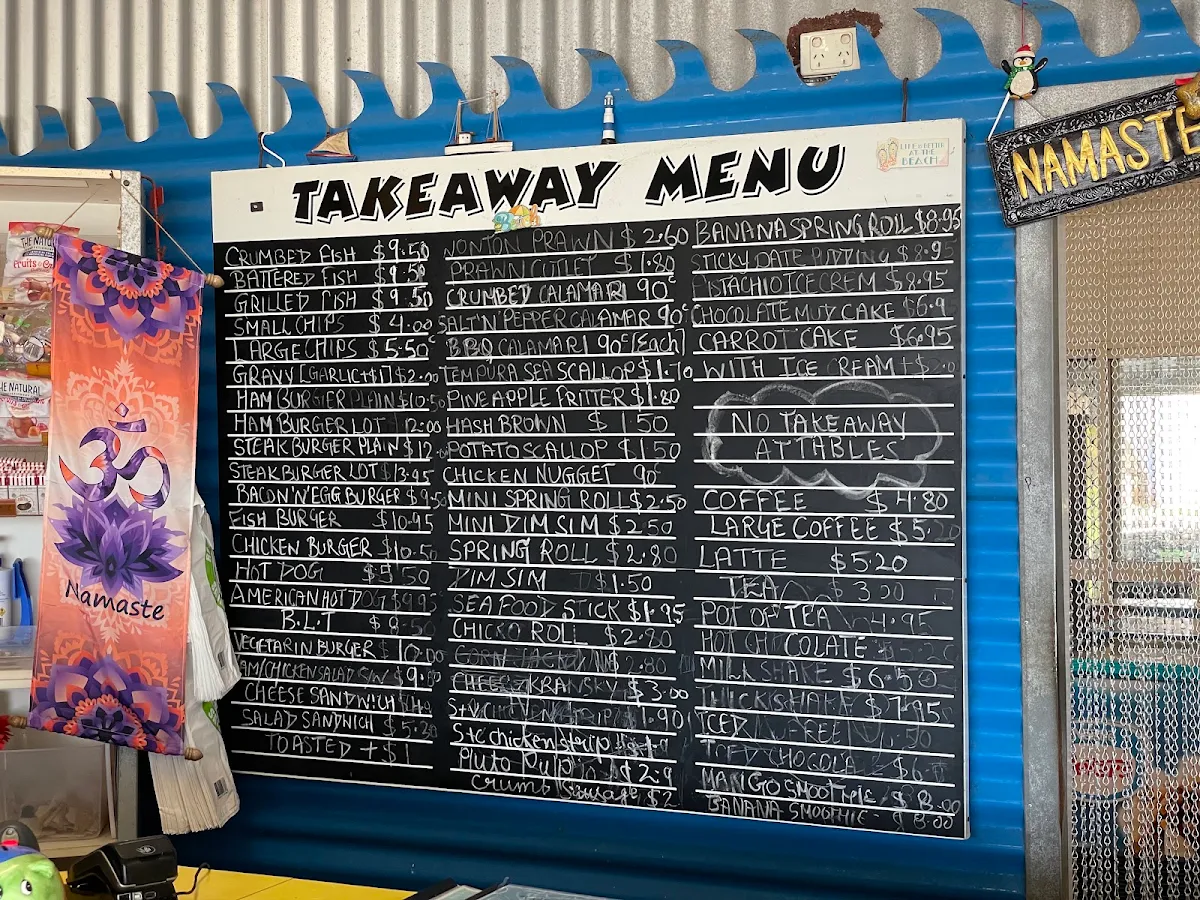 TAKEAWAY MENU
LIFE IS BETTER
AT THE
BEACH
NAMASTE
CRUMBED FISH $9.50
BATTERED FISH $9.50
GRILLED FISH $9.50
SMALL CHIPS $4.00
LARGE CHIPS $5.50
GRAVY [GARLIC+$1] $2.00
HAM BURGER PLAIN $10.50
HAM BURGER LOT 12.00
STEAK BURGER PLAIN $12
STEAK BURGER LOT $13.95
BACON'N'EGG BURGER $9.50
FISH BURGER $10.95
CHICKEN BURGER $10.50
HOT DOG $5.50
AMERICAN HOT DOG $9.95
B.L.T $8.50
VEGETARIN BURGER $10.00
CHEESE SANDWICH
SALAD SANDWICH $5.20
TOASTED + $1
WONTON PRAWN $2.60
PRAWN CUTLET $1.80
CRUMBED CALAMARI 90c
SALT'N PEPPER CALAMAR 90c
BBQ CALAMARI 90c [Each]
TEMPURA SEA SCALLOP $1.70
PINEAPPLE FRITTER $1.80
HASH BROWN $1.50
POTATO SCALLOP $1.50
CHICKEN NUGGET 90c
MINI SPRING ROLL $2.50
MINI DIM SIM $2.50
SPRING ROLL $2.80
DIM SIM $1.50
SEAFOOD STICK $1.95
CHICKO ROLL $2.80
CORN JACK 2.80
CHEESE KRANSKY $3.00
1.90
S+C chicken strip
Pluto Pup $2.9
Crumb Sausage $2
BANANA SPRING ROLL $8.95
STICKY DATE PUDDING $8.95
PISTACHIO ICE CREM $8.95
CHOCOLATE MUD CAKE $6.9
CARROT CAKE $6.95
WITH ICE CREAM +$2.0
NO TAKEAWAY
AT TABLES
COFFEE $4.80
LARGE COFFEE $5.20
LATTE $5.20
TEA $3.20
POT OF TEA 4.95
HOT CHOCOLATE 5.20
MILK SHAKE $6.50
THICKSHAKE $7.95
ICED COFFEE
ICED CHOCOLATE $6
MANGO SMOOTHIE $8.00
BANANA SMOOTHIE $8.00
Namaste
THE NATURAL